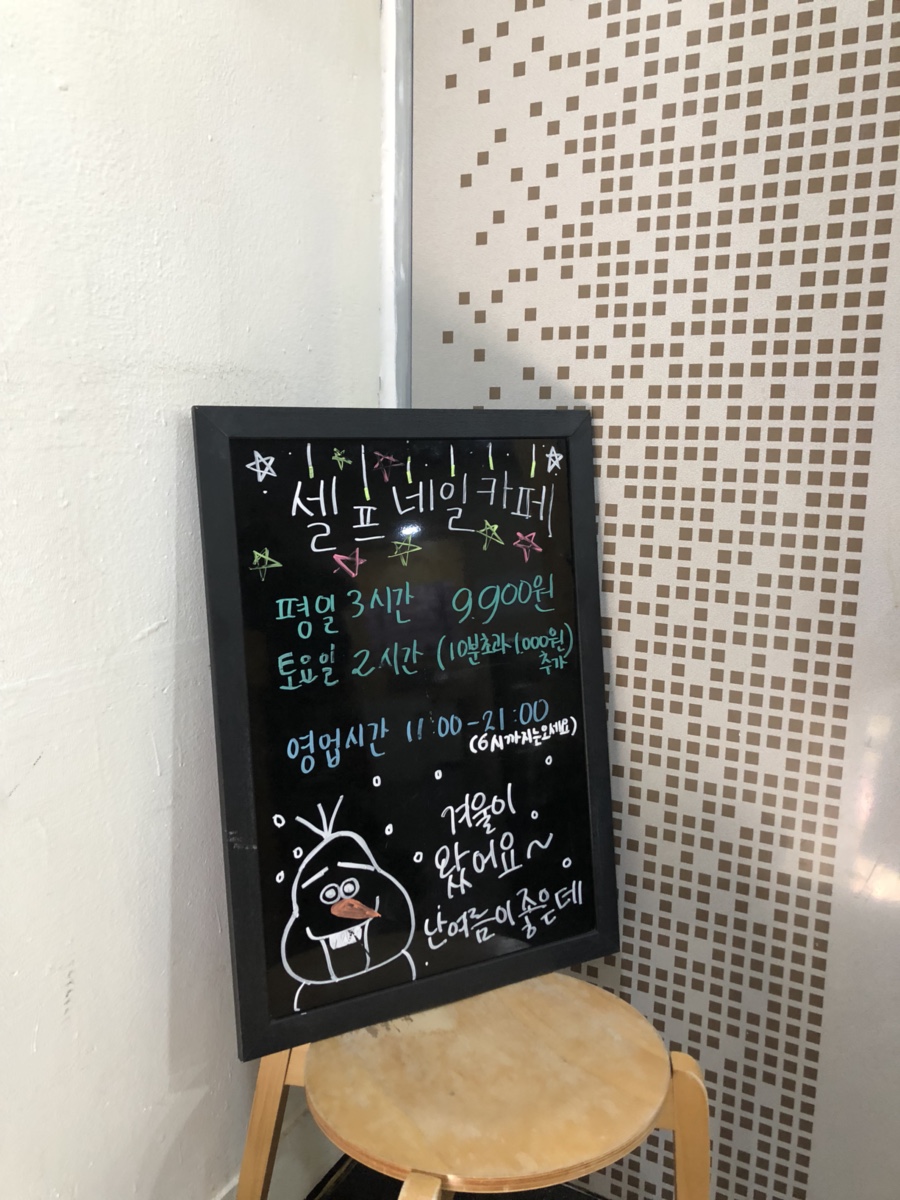 셀프네일카페
평일 3시간 9.900원
토요일 2시간 (10분초과 1.000원 추가)
영업시간 11:00-21:00
(6시까지는오세요)
겨울이
왔어요~
난여름이좋은데